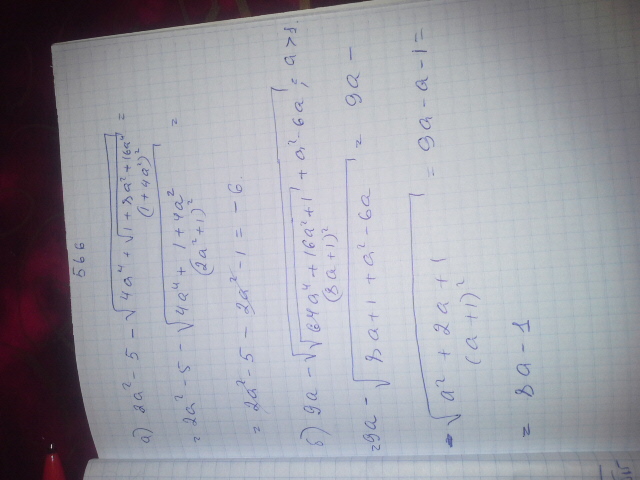 566
а) 2a² - 5 - √(4a⁴ + √(1 + 8a² + 16a⁴)) =
(1+4a²)²
= 2a² - 5 - √(4a⁴ + 1 + 4a²) =
(2a²+1)²
= 2a² - 5 - 2a² - 1 = -6.
б) 9a - √(√(64a⁴ + 16a² + 1) + a² - 6a) = ; a > 1.
(8a+1)²
= 9a - √(8a + 1 + a² - 6a) = 9a -
- √(a² + 2a + 1) = 9a - a - 1 =
(a+1)²
= 8a - 1